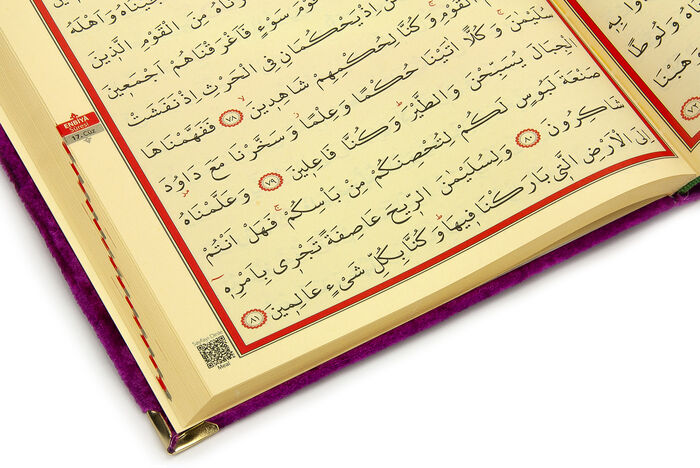 يْنَاهُ وَاَهْلَهُ
رْنَاهُ مِنَ الْقَوْمِ الَّذِينَ
قَوْمَ سَوْءٍ فَاَغْرَقْنَاهُمْ اَجْمَعِينَ
اِذْ يَحْكُمَانِ فِي الْحَرْثِ اِذْ نَفَشَتْ
الْقَوْمِ وَكُنَّا لِحُكْمِهِمْ شَاهِدِينَ ٧٨ فَفَهَّمْنَاهَا
سُلَيْمٰنَ وَكُلًّا اٰتَيْنَا حُكْمًا وَعِلْمًا وَسَخَّرْنَا مَعَ دَاوُدَ
الْجِبَالَ يُسَبِّحْنَ وَالطَّيْرَ وَكُنَّا فَاعِلِينَ ٧٩ وَعَلَّمْنَاهُ
صَنْعَةَ لَبُوسٍ لَكُمْ لِتُحْصِنَكُمْ مِنْ بَأْسِكُمْ فَهَلْ اَنْتُمْ
شَاكِرُونَ ٨٠ وَلِسُلَيْمٰنَ الرِّيحَ عَاصِفَةً تَجْرِي بِاَمْرِهِ
اِلَى الْاَرْضِ الَّتِي بَارَكْنَا فِيهَا وَكُنَّا بِكُلِّ شَيْءٍ عَالِمِينَ ٨١
ENBİYA
Sûresi
17. Cüz
Sayfayı Dinle
Meal
وا بِهِ
وَلُوطًا
وَوَهَبْنَا